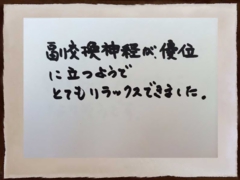 副交換神経が優位
に立つようで
とてもリラックスできました。